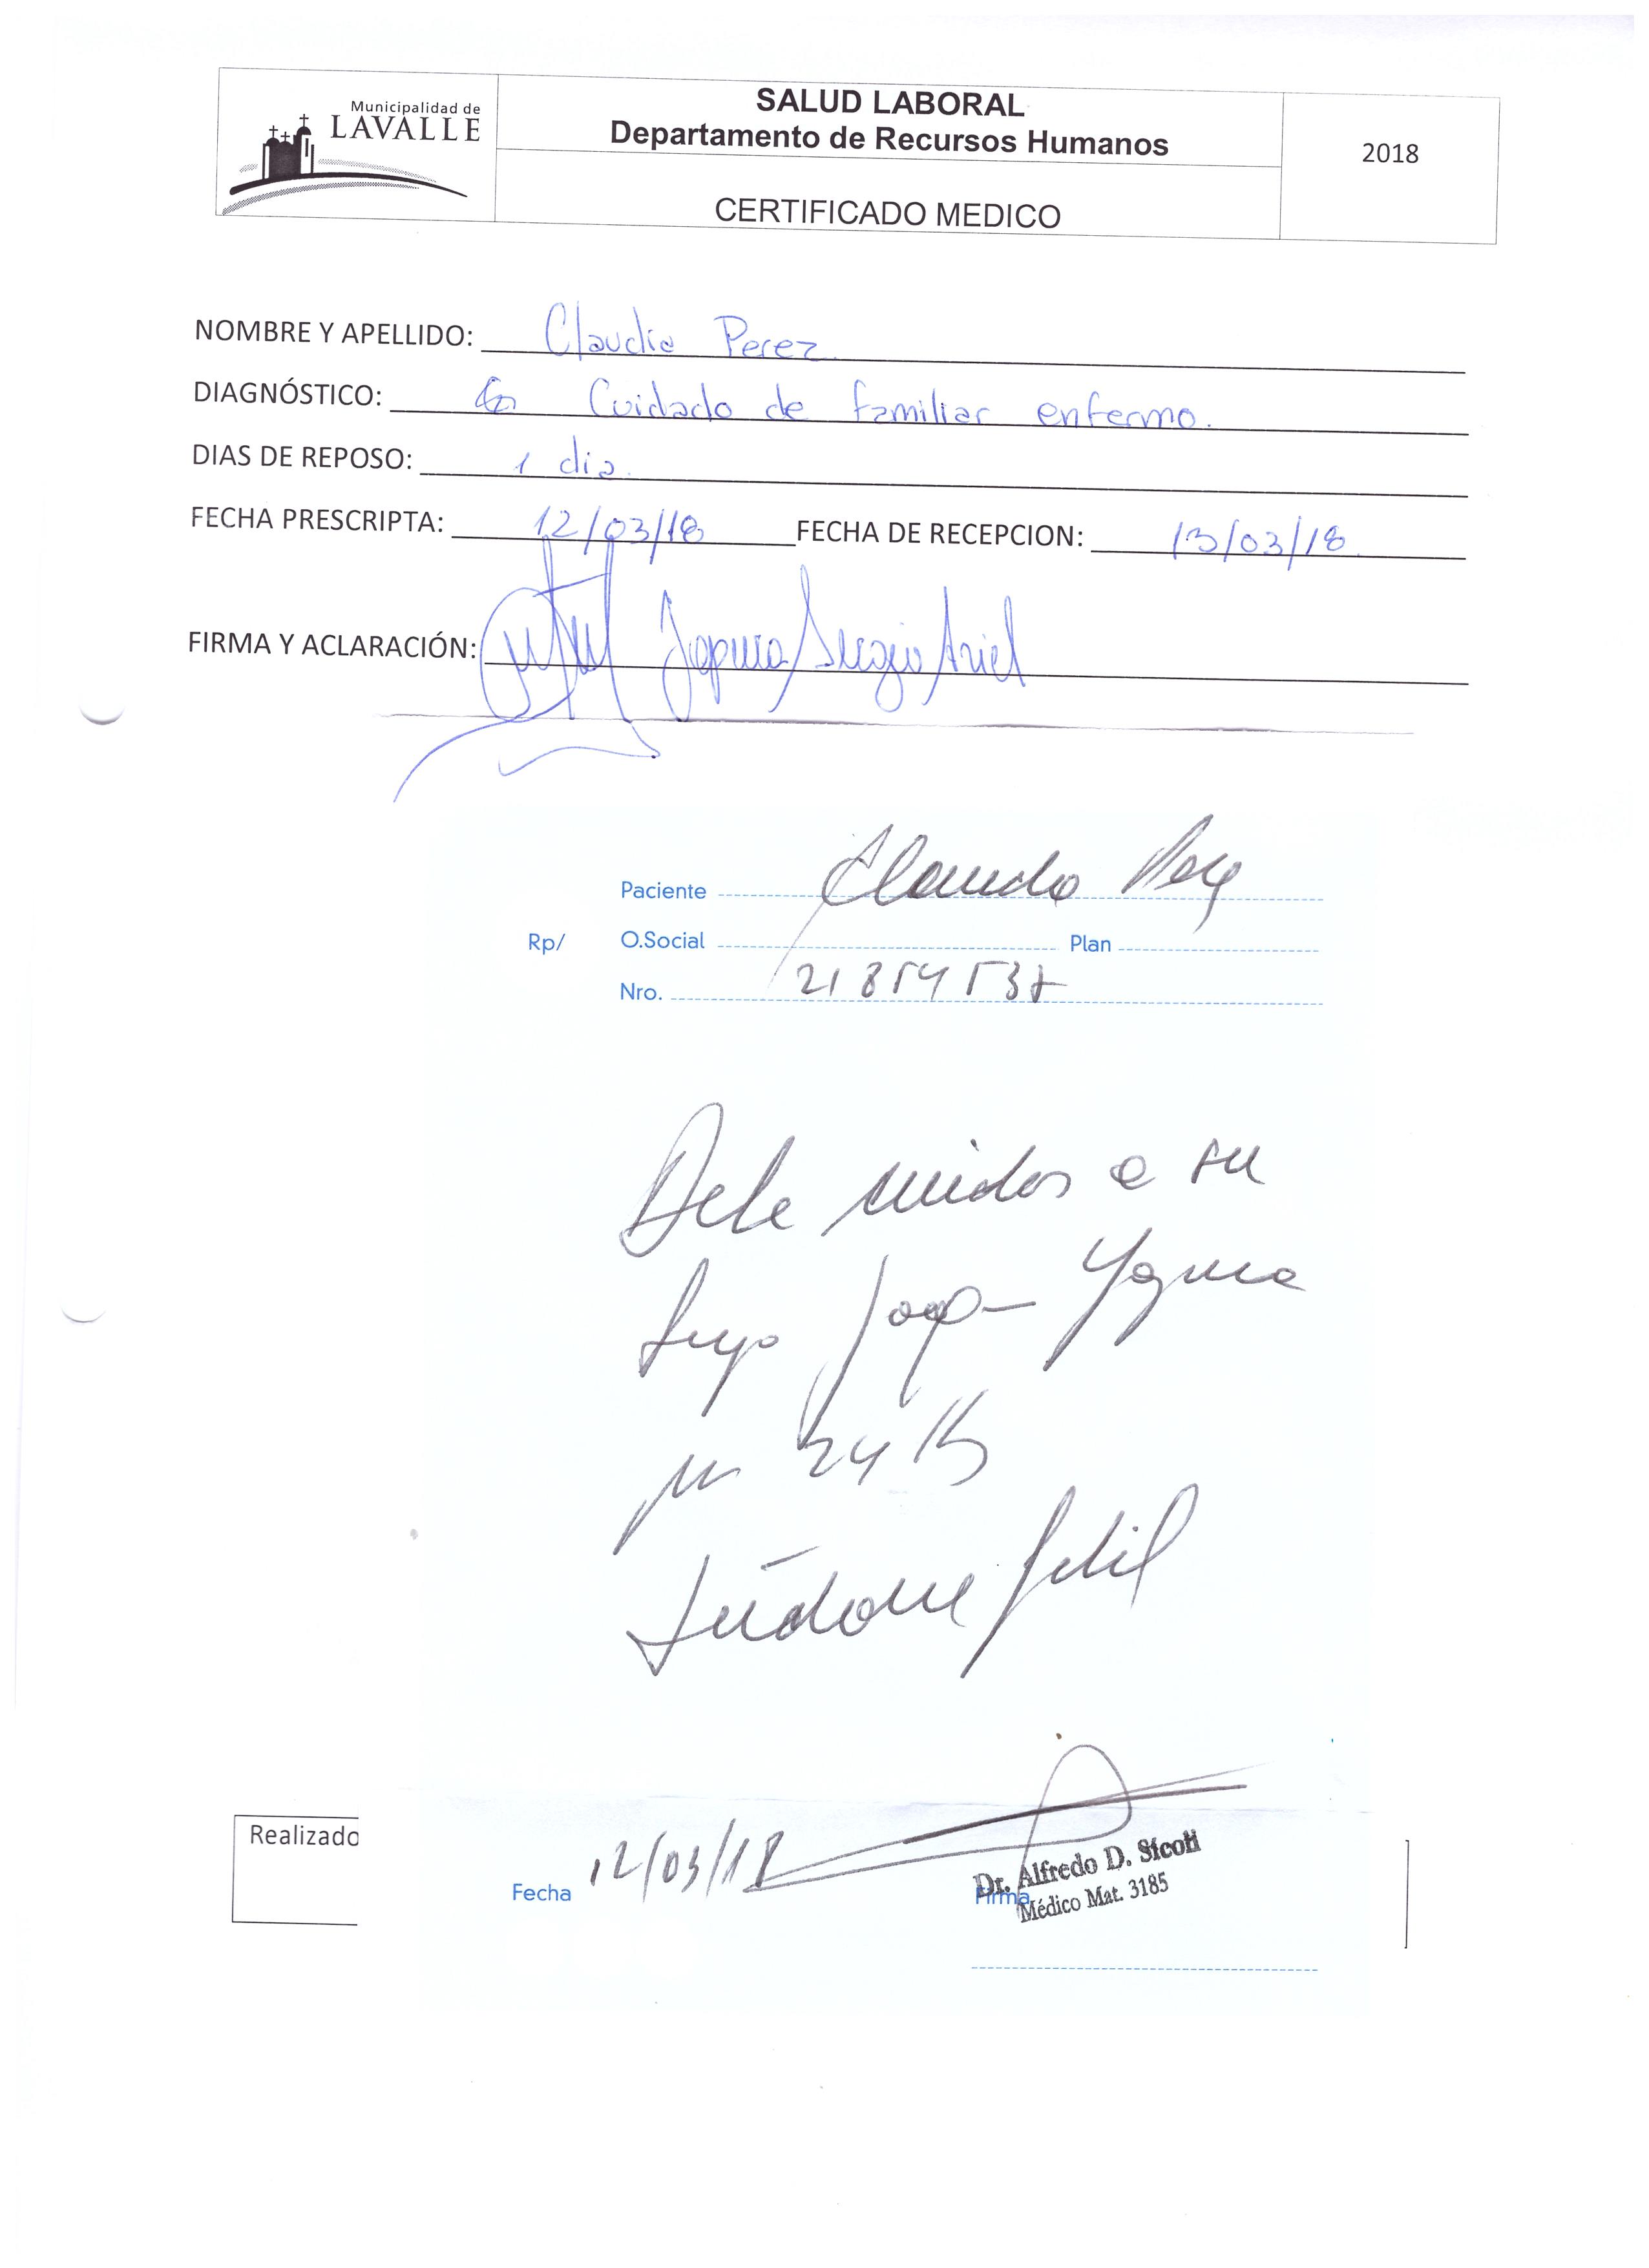 Municipalidad de
LAVALLE
SALUD LABORAL
Departamento de Recursos Humanos
CERTIFICADO MEDICO
2018
NOMBRE Y APELLIDO: Claudia Perez
DIAGNÓSTICO: Cuidado de familiar enfermo.
DIAS DE REPOSO: 1 dia.
FECHA PRESCRIPTA: 12/03/18 FECHA DE RECEPCION: 13/03/18
FIRMA Y ACLARACIÓN: Sergio Ariel
Paciente Claudia
Rp/ O.Social Plan
Nro. 21854537
Debe a su
24 hs
febril
Realizado
Fecha 12/03/18
Firma
Dr. Alfredo D. Sicoli
Médico Mat. 3185